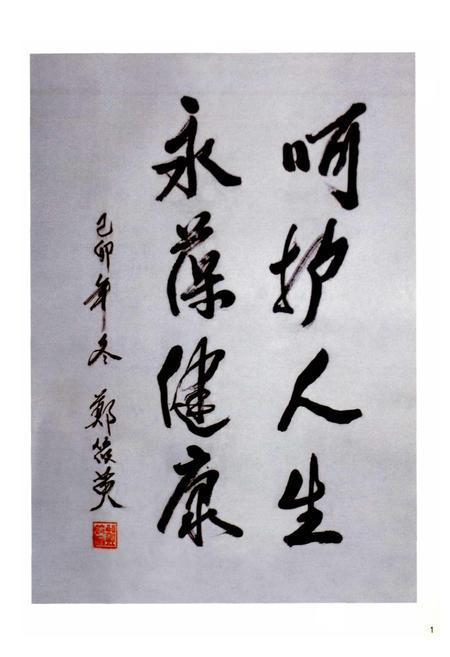 呵护人生
永葆健康
己卯年冬 鄭筱萸
1